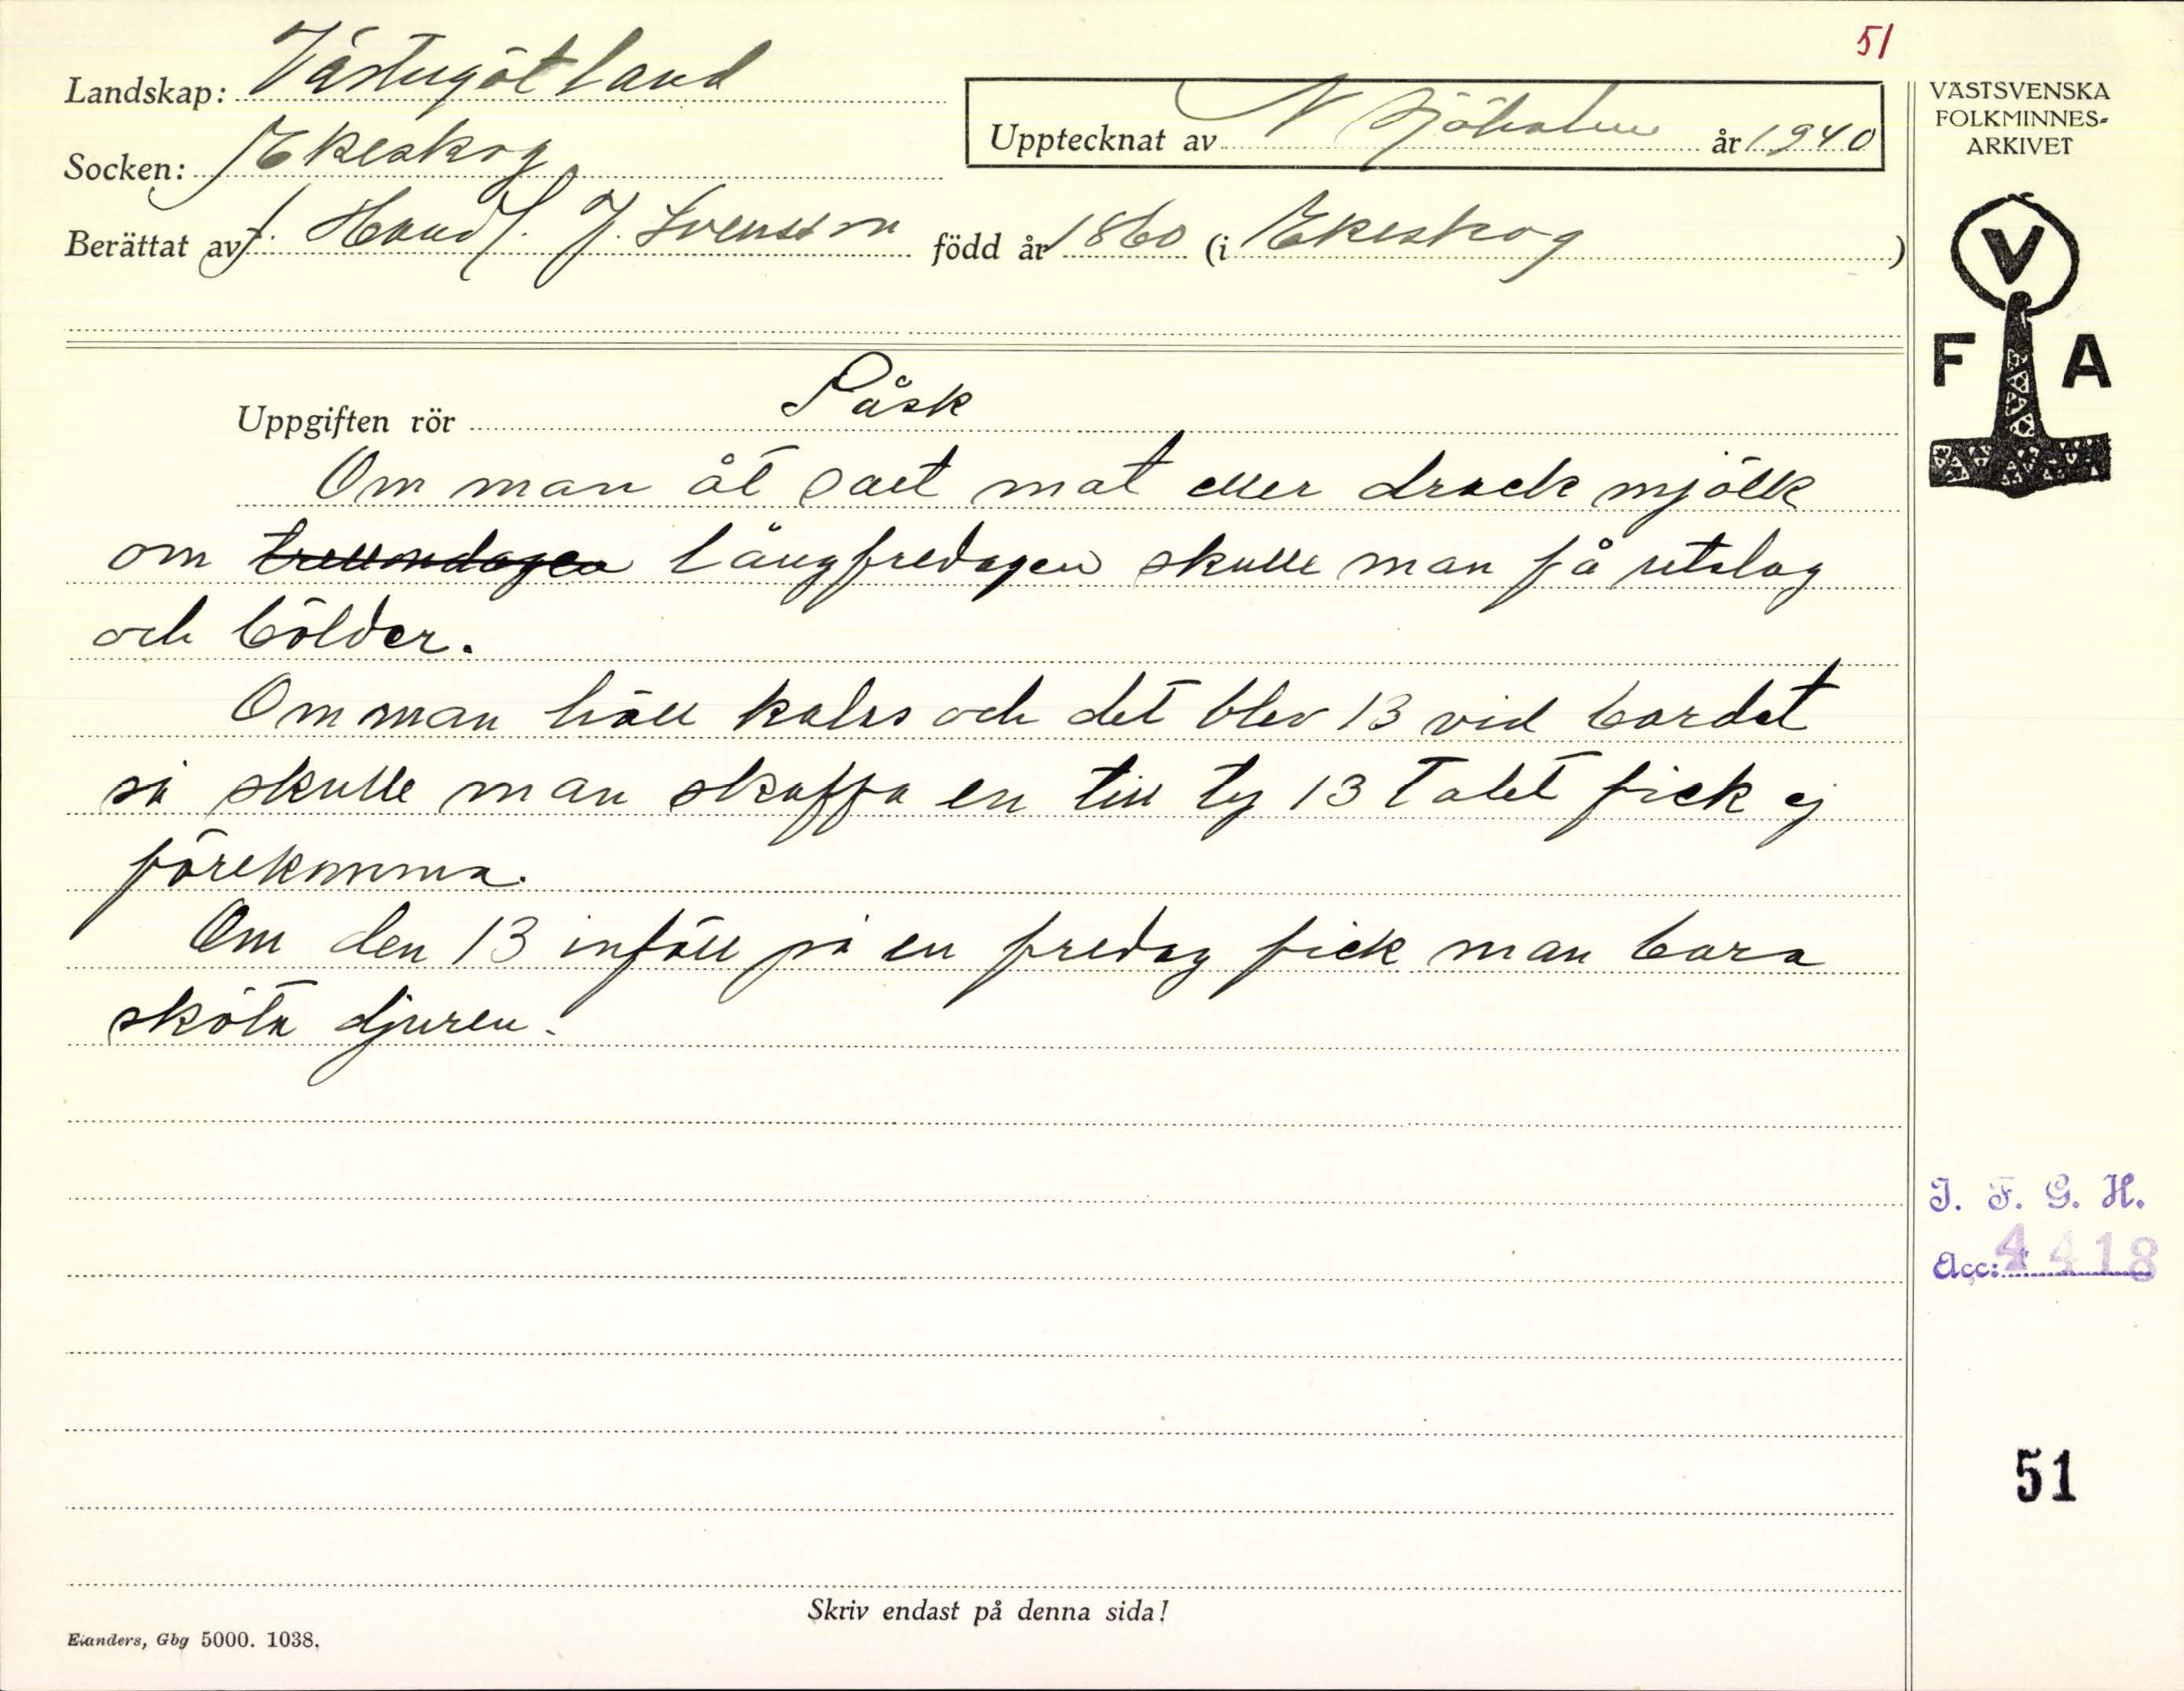 51
Landskap: Västergötland
Upptecknat av N Sjöholm år 1940
Socken: Ekeskog
Berättat av f. Handl. J. Svensson född år 1860 (i Ekeskog)
VÄSTSVENSKA
FOLKMINNES-
ARKIVET
V
F A
Uppgiften rör Påsk
Om man åt salt mat eller drack mjölk
om långfredagen skulle man få utslag
och bölder.
Om man höll kalas och det blev 13 vid bordet
så skulle man skaffa en till ty 13 talet fick ej
förekomma.
Om den 13 inföll på en fredag fick man bara
sköta djuren.
I. F. G. H.
Acc: 4418
51
Skriv endast på denna sida!
Elanders, Gbg 5000. 1038.